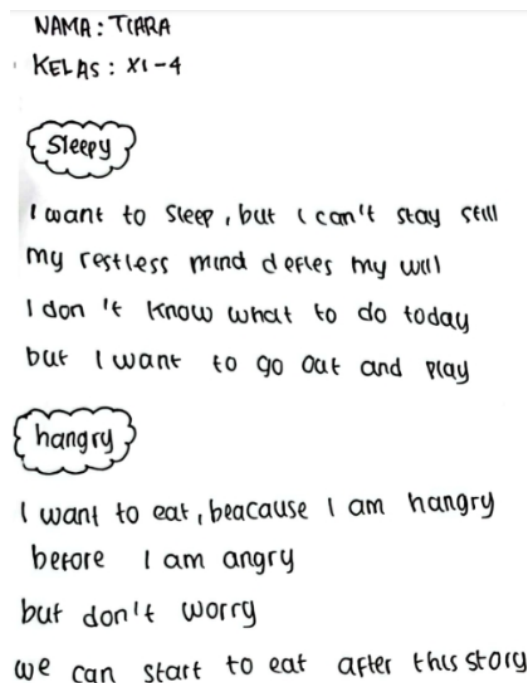 NAMA : TIARA
KELAS : XI-4
Sleepy
I want to sleep, but I can't stay still
my restless mind defies my will
I don't know what to do today
but I want to go out and play
hangry
I want to eat, beacause I am hangry
before I am angry
but don't worry
we can start to eat after this story